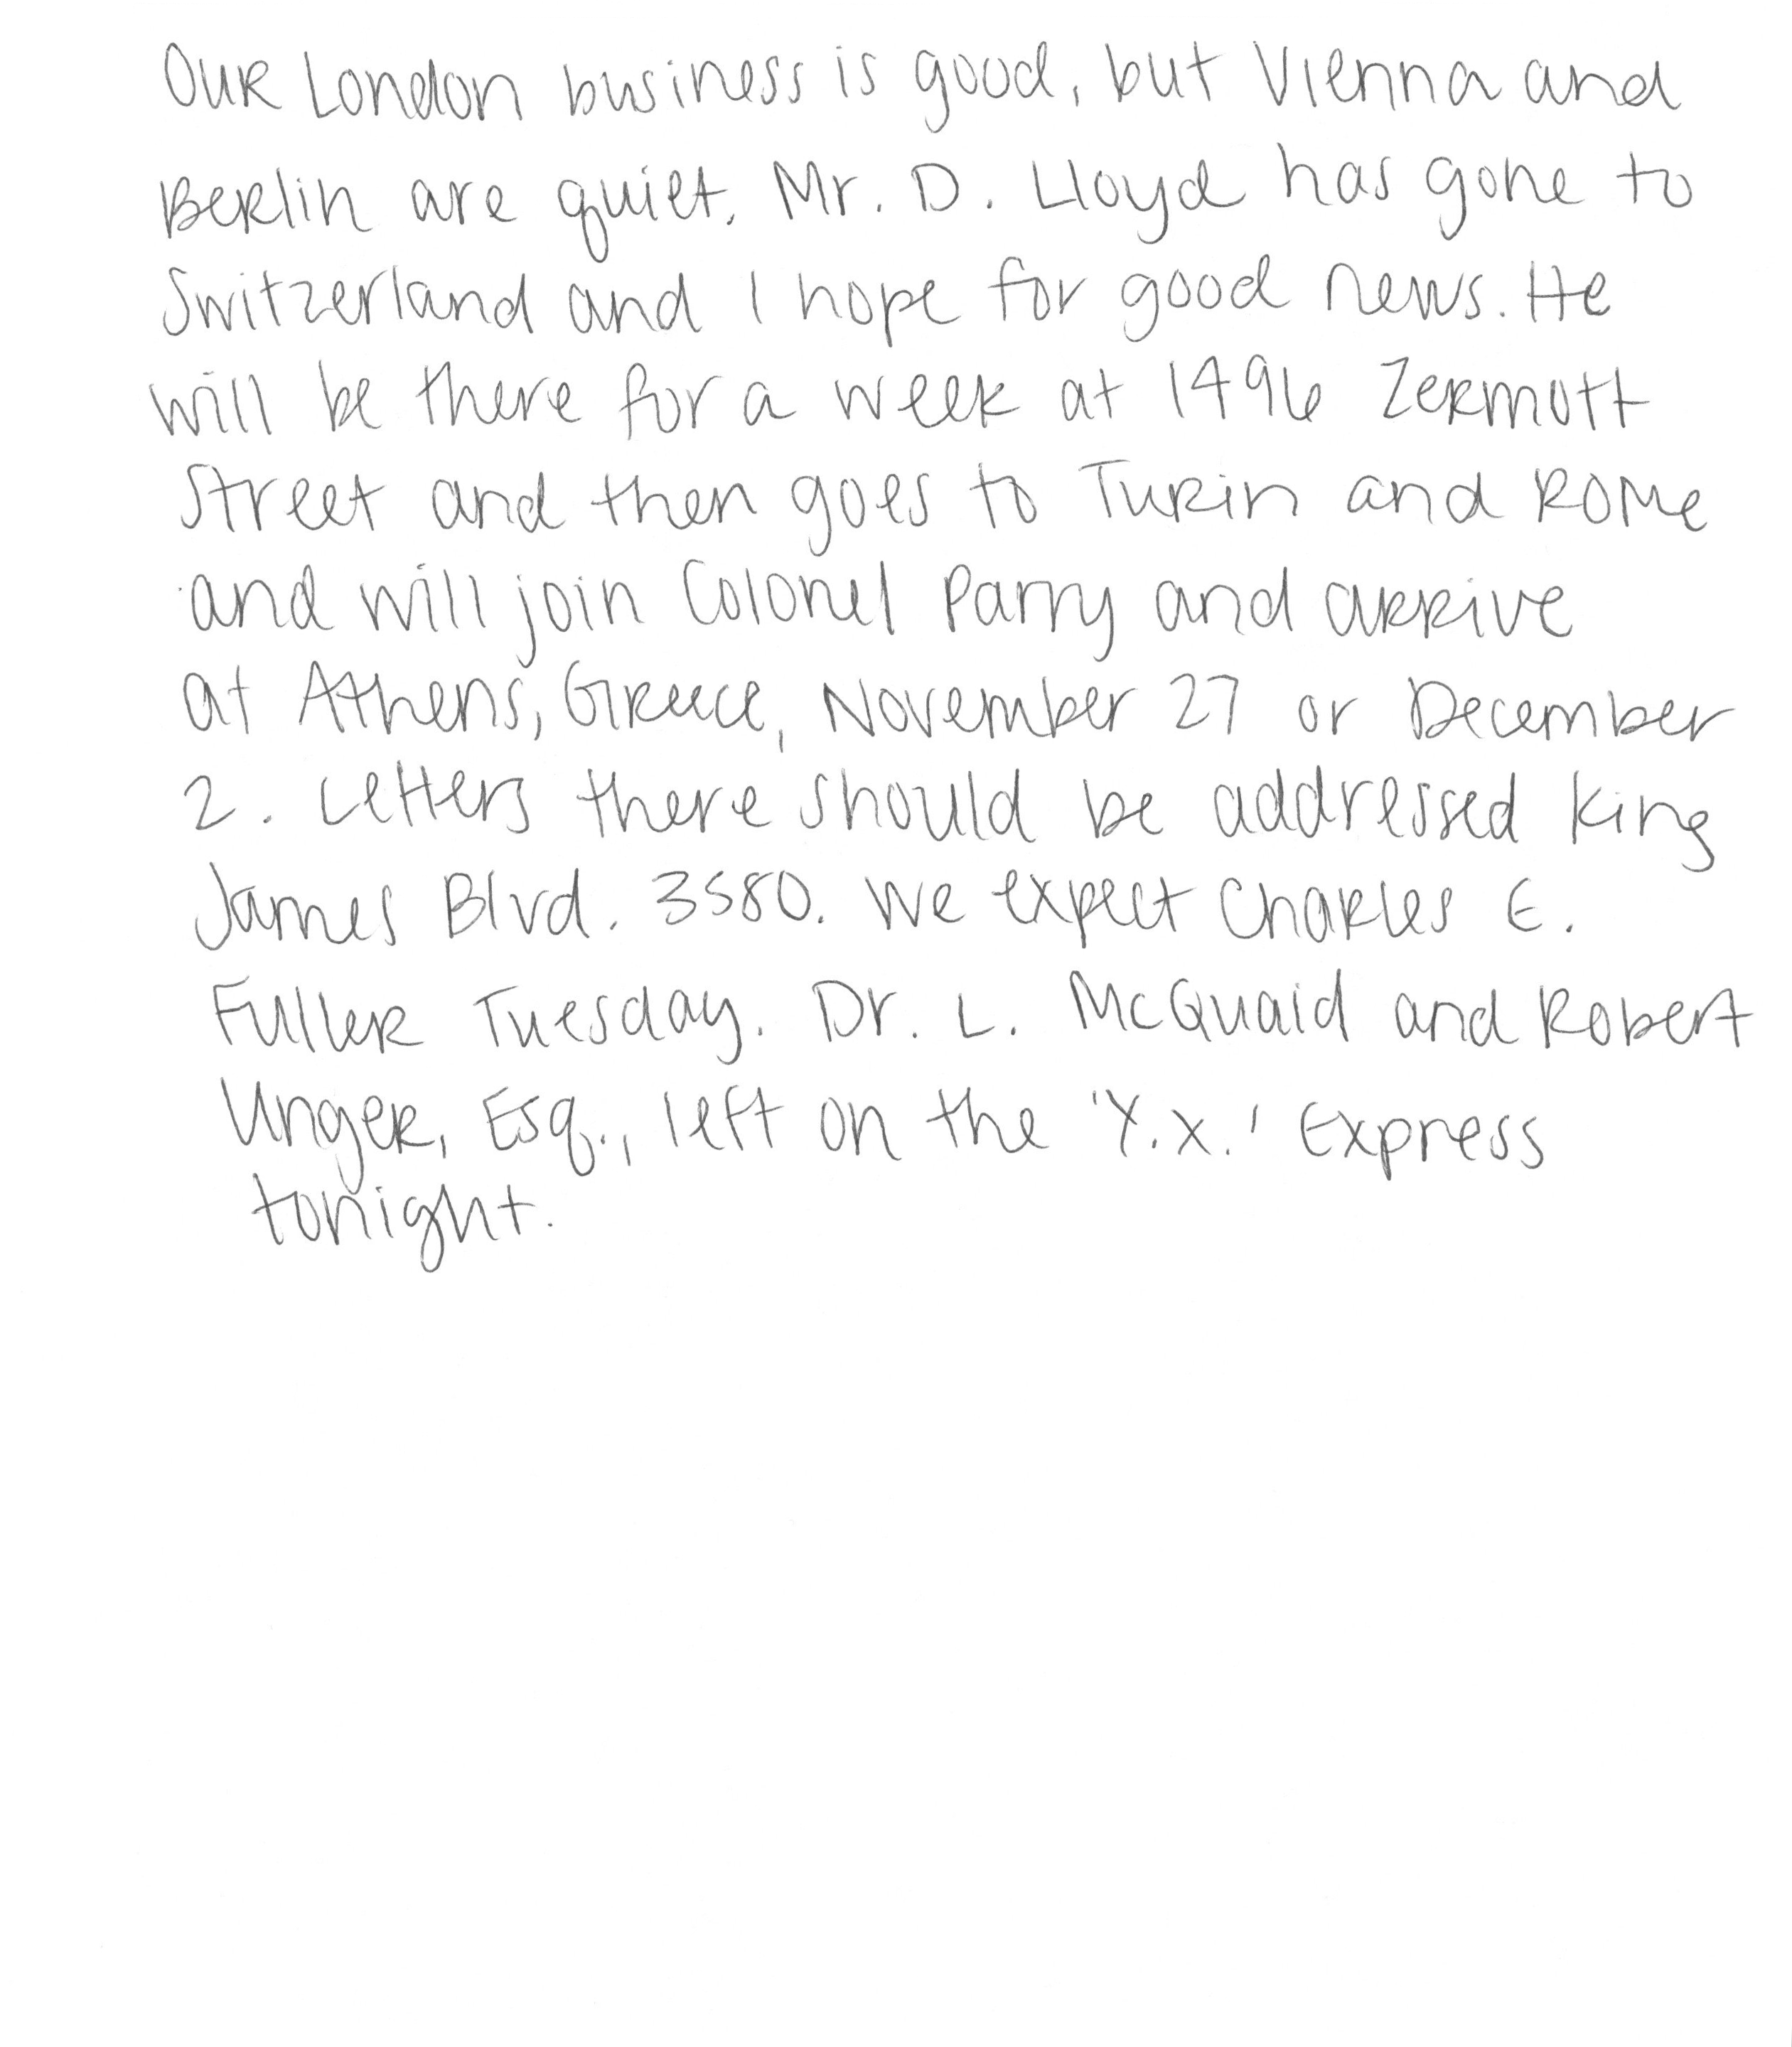 Our London business is good, but Vienna and
Berlin are quiet. Mr. D. Lloyd has gone to
Switzerland and I hope for good news. He
will be there for a week at 1496 Zermott
Street and then goes to Turin and Rome
and will join Colonel Parry and arrive
at Athens, Greece, November 27 or December
2. Letters there should be addressed King
James Blvd. 3580. We expect Charles E.
Fuller Tuesday. Dr. L. McQuaid and Robert
Unger, Esq., left on the 'Y.X.' Express
tonight.